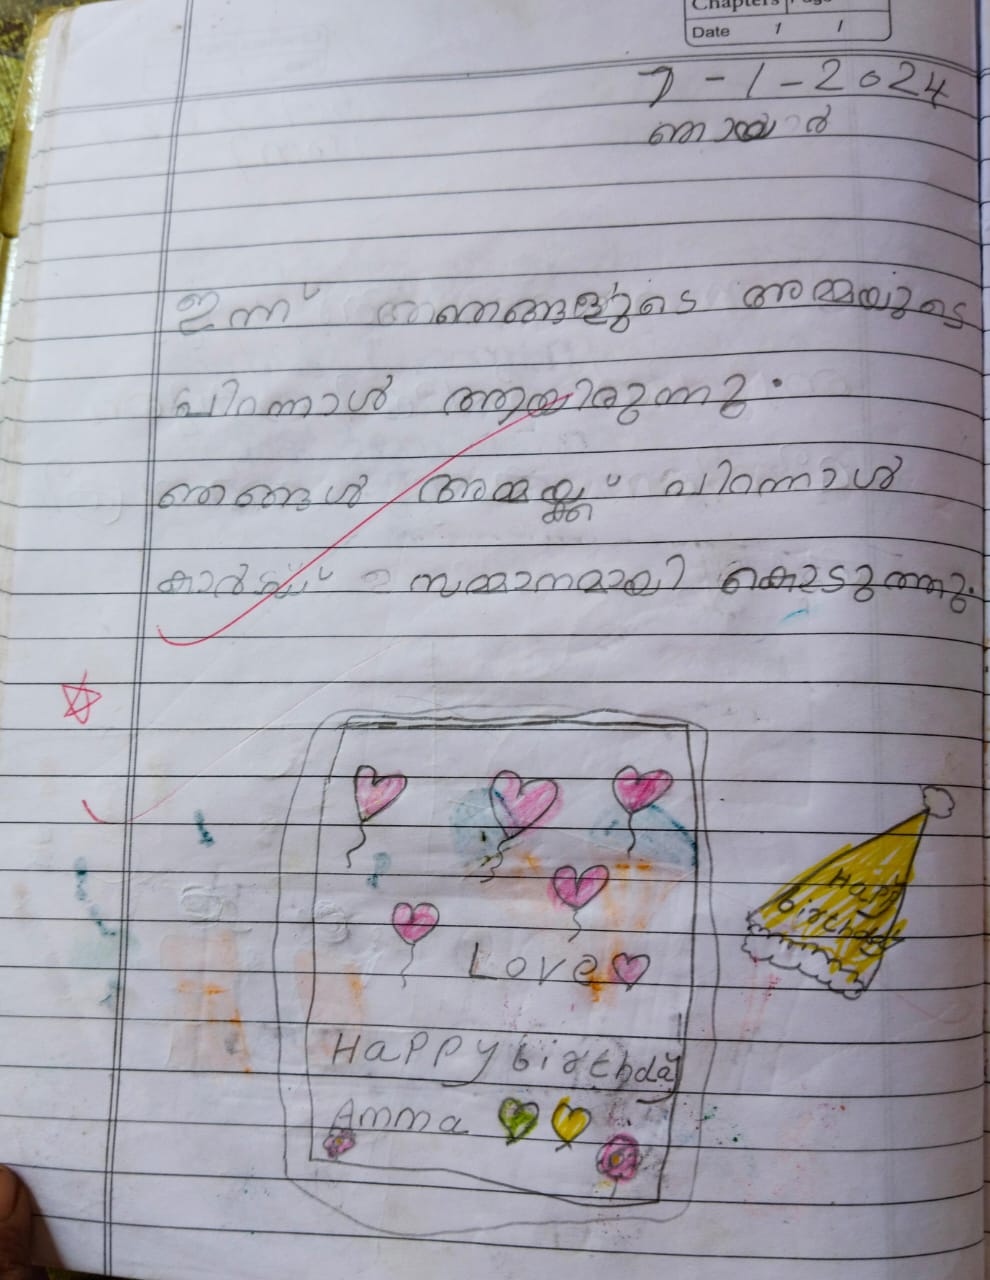 Date / /
7-1-2024
ഞായർ
ഇന്ന് ഞങ്ങളുടെ അമ്മയുടെ
പിറന്നാൾ ആയിരുന്നു.
ഞങ്ങൾ അമ്മയ്ക്ക് പിറന്നാൾ
കാർഡ് സമ്മാനമായി കൊടുത്തു.
Happy
birthday
Love
Happy birthday
Amma